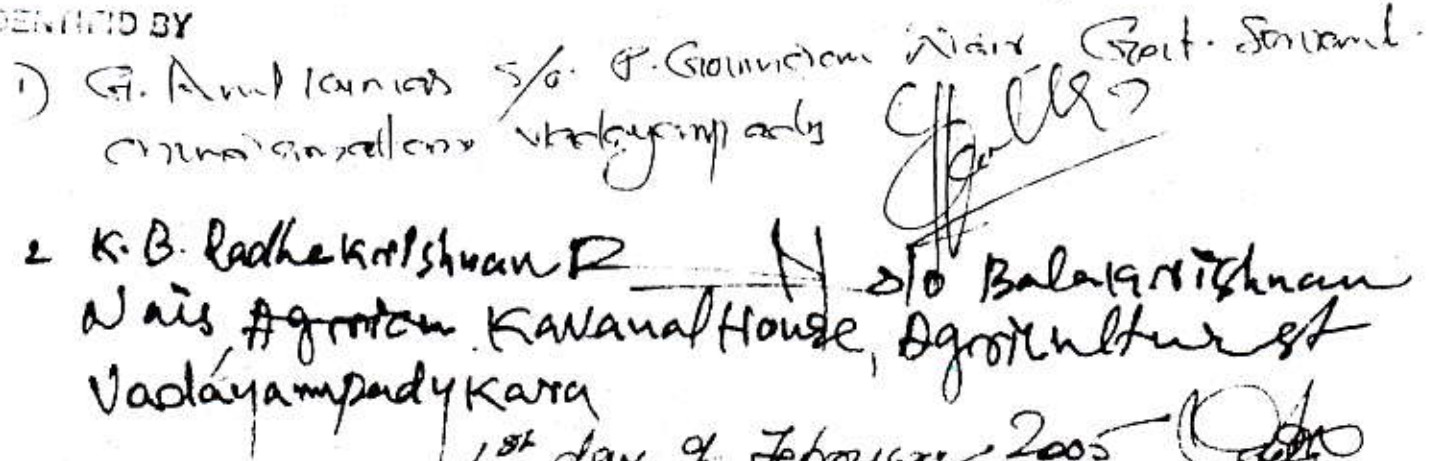 IDENTIFID BY
1) G. Anil Kumar S/o. P. Govindan Nair Govt. Servant.
Vadayampady
2 K. B. Radhakrishnan s/o Balakrishnan
Nair, Kavanal House, Agriculturist
Vadayampady Kara
1st day of February 2005